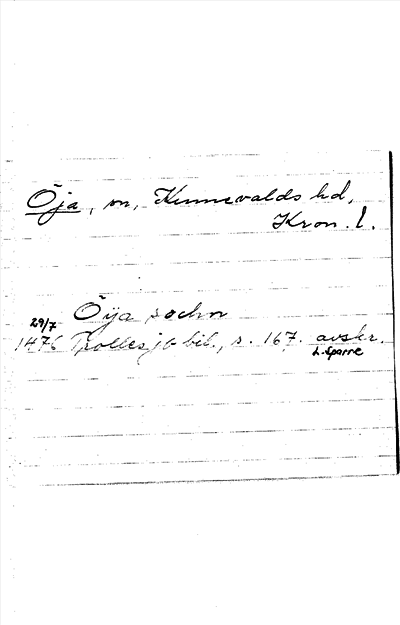 Öja, sn, Kinnevalds hd,
Kron. l.
Öija sochn
29/7
1476 Trolles jb bil., s. 167. avskr.
L. Sparre